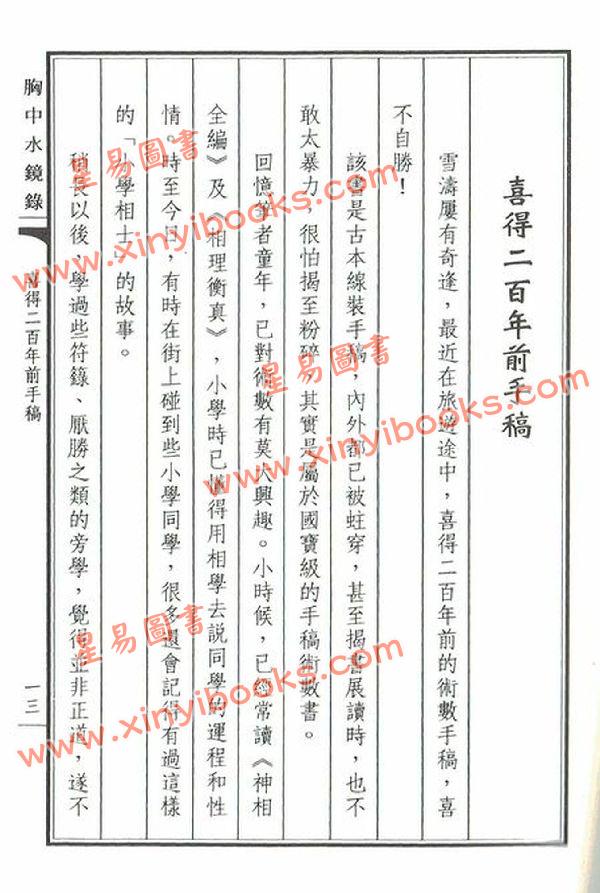 喜得二百年前手稿
雪濤屢有奇逢，最近在旅遊途中，喜得二百年前的術數手稿，喜
不自勝！
該書是古本線裝手稿，內外都已被蛀穿，甚至揭書展讀時，也不
敢太暴力，很怕揭至粉碎，其實是屬於國寶級的手稿術數書。
回憶筆者童年，已對術數有莫大興趣。小時候，已經常讀《神相
全編》及《相理衡真》，小學時已懂得用相學去說同學的運程和性
情。時至今日，有時在街上碰到些小學同學，很多還會記得有過這樣
的「小學相士」的故事。
稍長以後，學過些符籙、厭勝之類的旁學，覺得並非正道，遂不
胸中水鏡錄
喜得二百年前手稿
一三
星易圖書
www.xinyibooks.com
星易圖書
www.xinyibooks.com
星易圖書
www.xinyibooks.com
星易圖書
www.xinyibooks.com